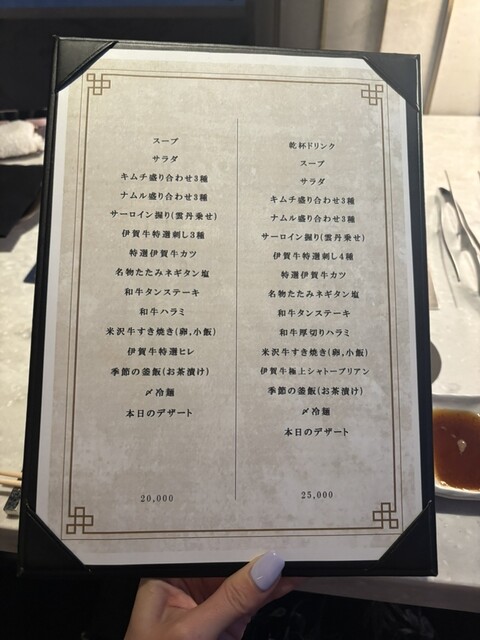 スープ
サラダ
キムチ盛り合わせ3種
ナムル盛り合わせ3種
サーロイン握り(雲丹乗せ)
伊賀牛特選刺し3種
特選伊賀牛カツ
名物たたみネギタン塩
和牛タンステーキ
和牛ハラミ
米沢牛すき焼き(卵,小飯)
伊賀牛特選ヒレ
季節の釜飯(お茶漬け)
〆冷麺
本日のデザート
20,000
乾杯ドリンク
スープ
サラダ
キムチ盛り合わせ3種
ナムル盛り合わせ3種
サーロイン握り(雲丹乗せ)
伊賀牛特選刺し4種
特選伊賀牛カツ
名物たたみネギタン塩
和牛タンステーキ
和牛厚切りハラミ
米沢牛すき焼き(卵,小飯)
伊賀牛極上シャトーブリアン
季節の釜飯(お茶漬け)
〆冷麺
本日のデザート
25,000